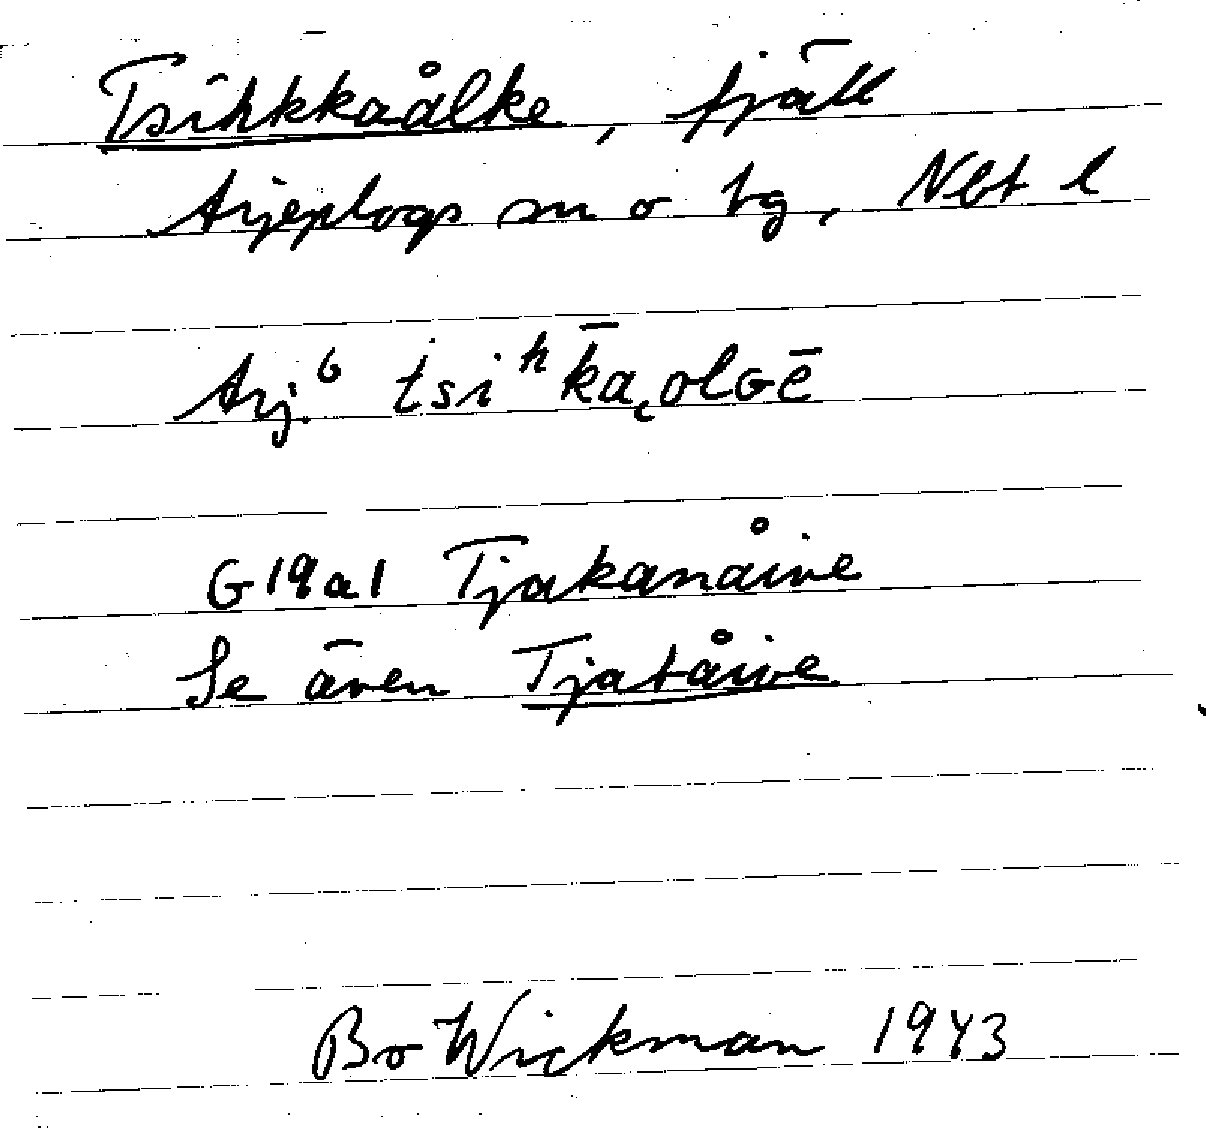 Tsihkkaålke, fjäll
Arjeplogs sn o tg, Nbt l
Arj.⁶ tsiʰk̄a˛olɢē
G19a1 Tjakanåive
Se även Tjatåive
Bo Wickman 1943